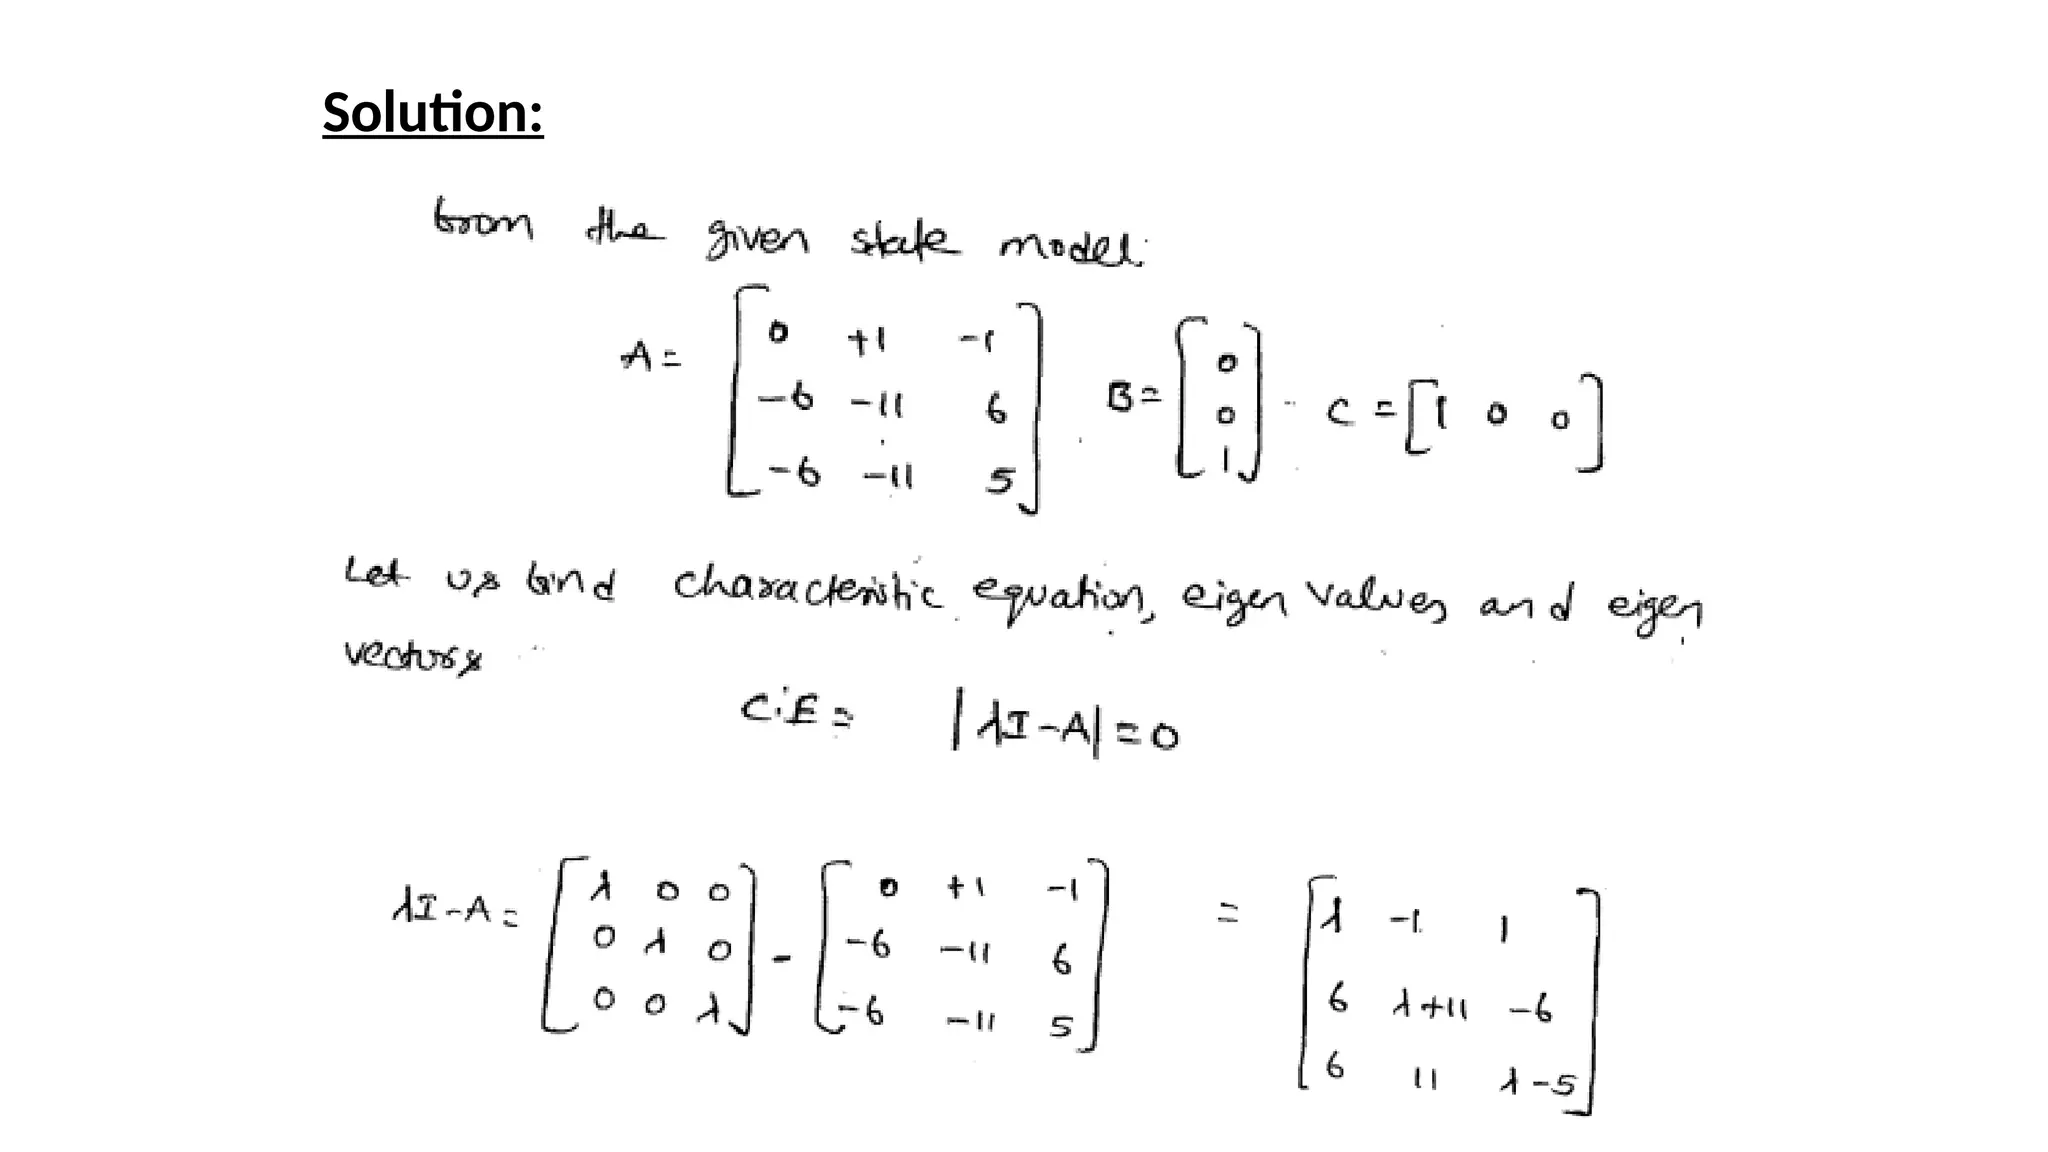 Solution:
from the given state model:
A = [ 0 +1 -1 ; -6 -11 6 ; -6 -11 5 ] B = [ 0 ; 0 ; 1 ] C = [ 1 0 0 ]
Let us find characteristic equation, eigen values and eigen
vectors
C.E = |λI-A| = 0
λI-A = [ λ 0 0 ; 0 λ 0 ; 0 0 λ ] - [ 0 +1 -1 ; -6 -11 6 ; -6 -11 5 ] = [ λ -1 1 ; 6 λ+11 -6 ; 6 11 λ-5 ]